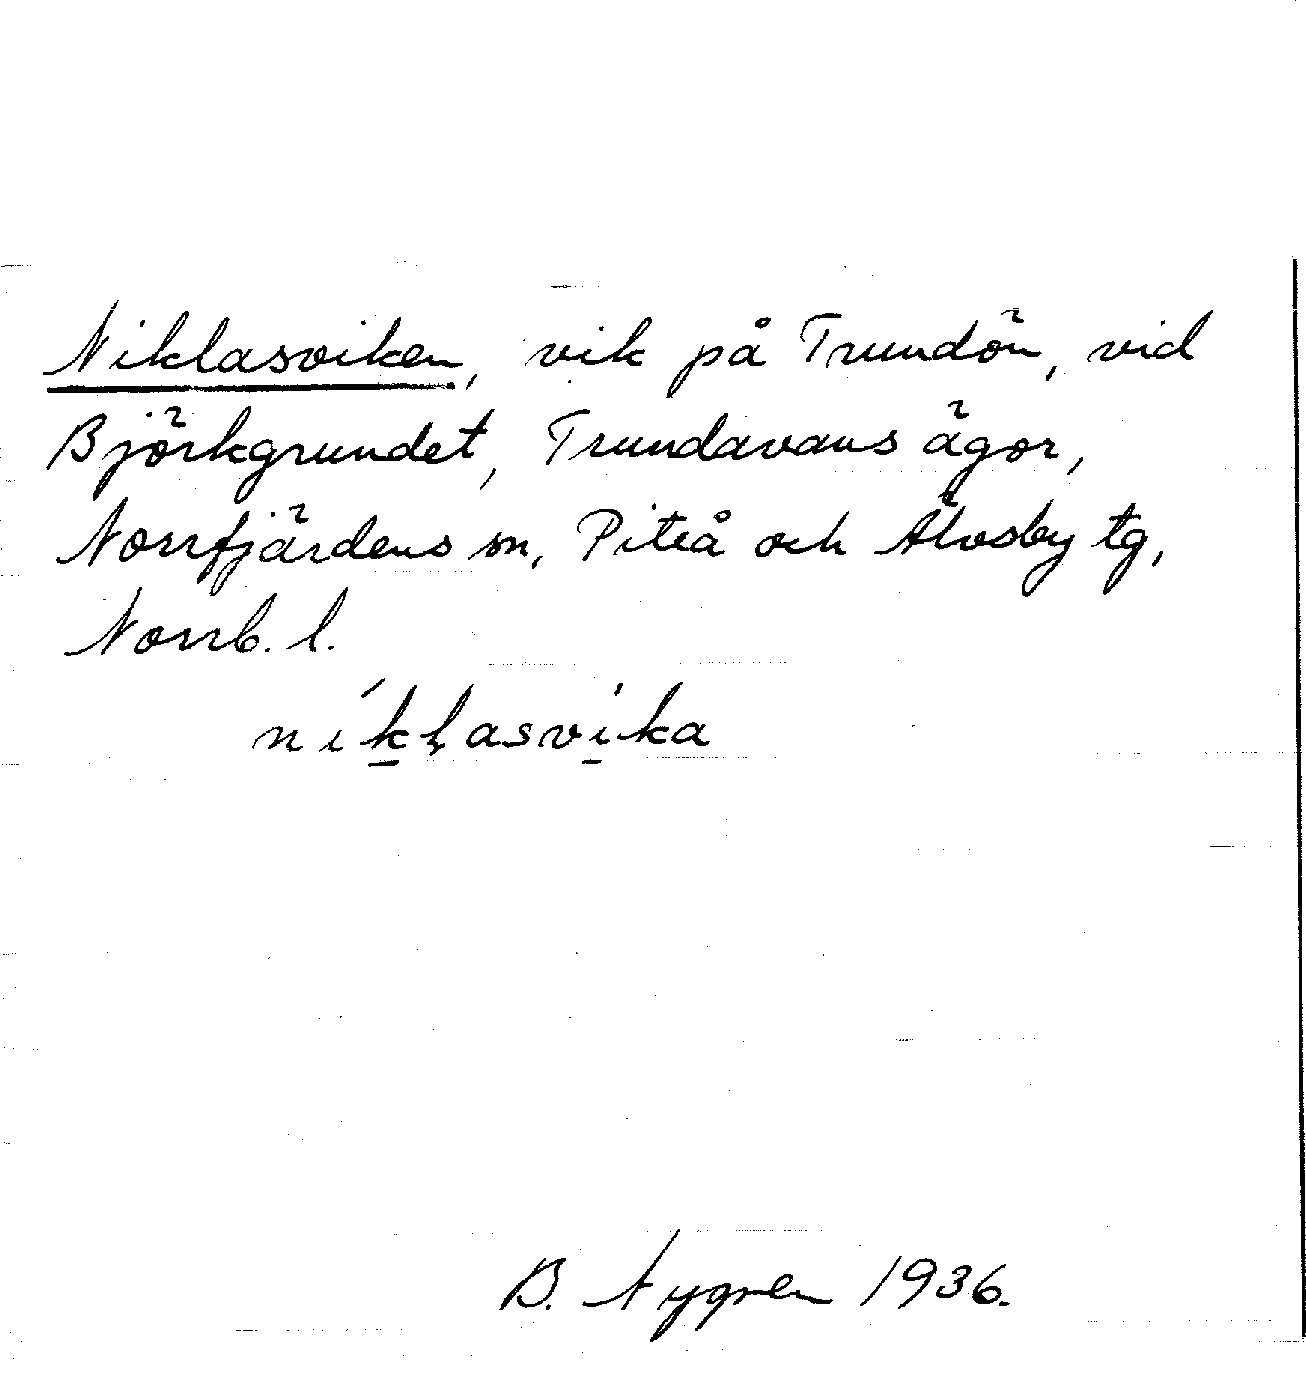 Niklasviken, vik på Trundön, vid
Björkgrundet, Trundavans ägor,
Norrfjärdens sn, Piteå och Älvsby tg,
Norrb. l.
níklasvika
B. Nygren 1936.